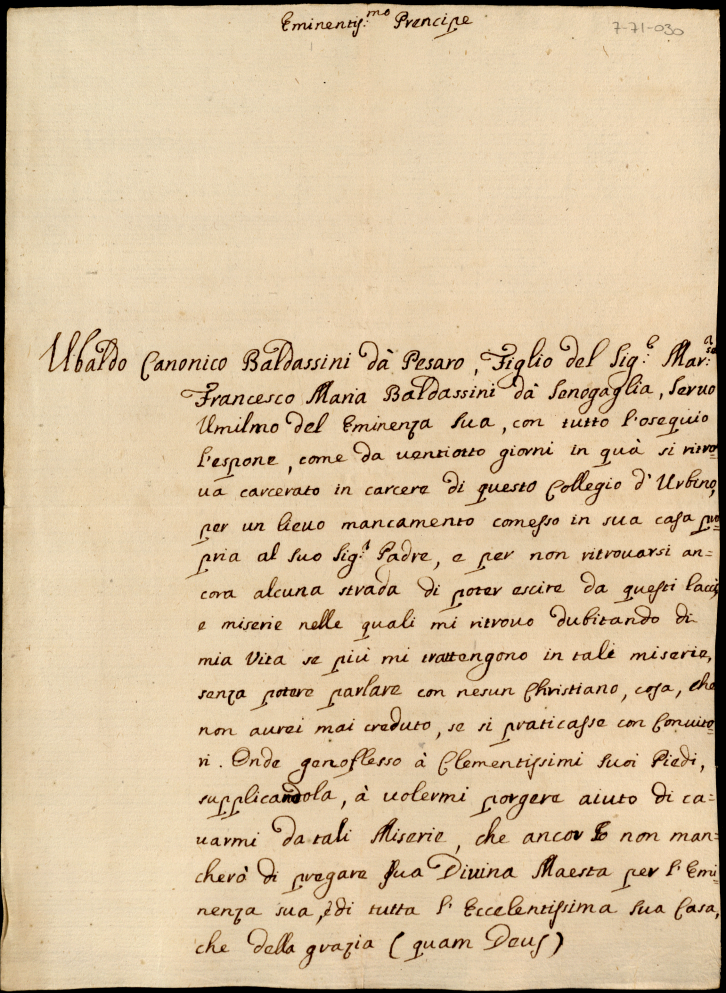 Eminentiss:mo Prencipe
7-71-030
Ubaldo Canonico Baldassini dà Pesaro, Figlio del Sig:e Mar:se
Francesco Maria Baldassini dà Senogaglia, Servo
Umilmo del Eminenza Sua, con tutto l'osequio
l'espone, come da ventiotto giorni in quà si ritro=
va carcerato in carcere di questo Collegio d'Urbino,
per un lievo mancamento comesso in sua casa pro=
pria al suo Sig:r Padre, e per non ritrovarsi an=
cora alcuna strada di poter escire da questi lacci,
e miserie nelle quali mi ritrovo dubitando di
mia Vita se più mi trattengono in tali miserie,
senza potere parlare con nesun Christiano, cosa, che
non aurei mai creduto, se si praticasse con Convito=
ri. Onde genoflesso à Clementissimi suoi Piedi,
supplicandola, à volermi porgere aiuto di ca=
varmi da tali Miserie, che ancor Io non man=
cherò di pregare Sua Divina Maesta per l'Emi=
nenza sua, e di tutta l'Eccelentissima sua Casa,
che della grazia (quam Deus)